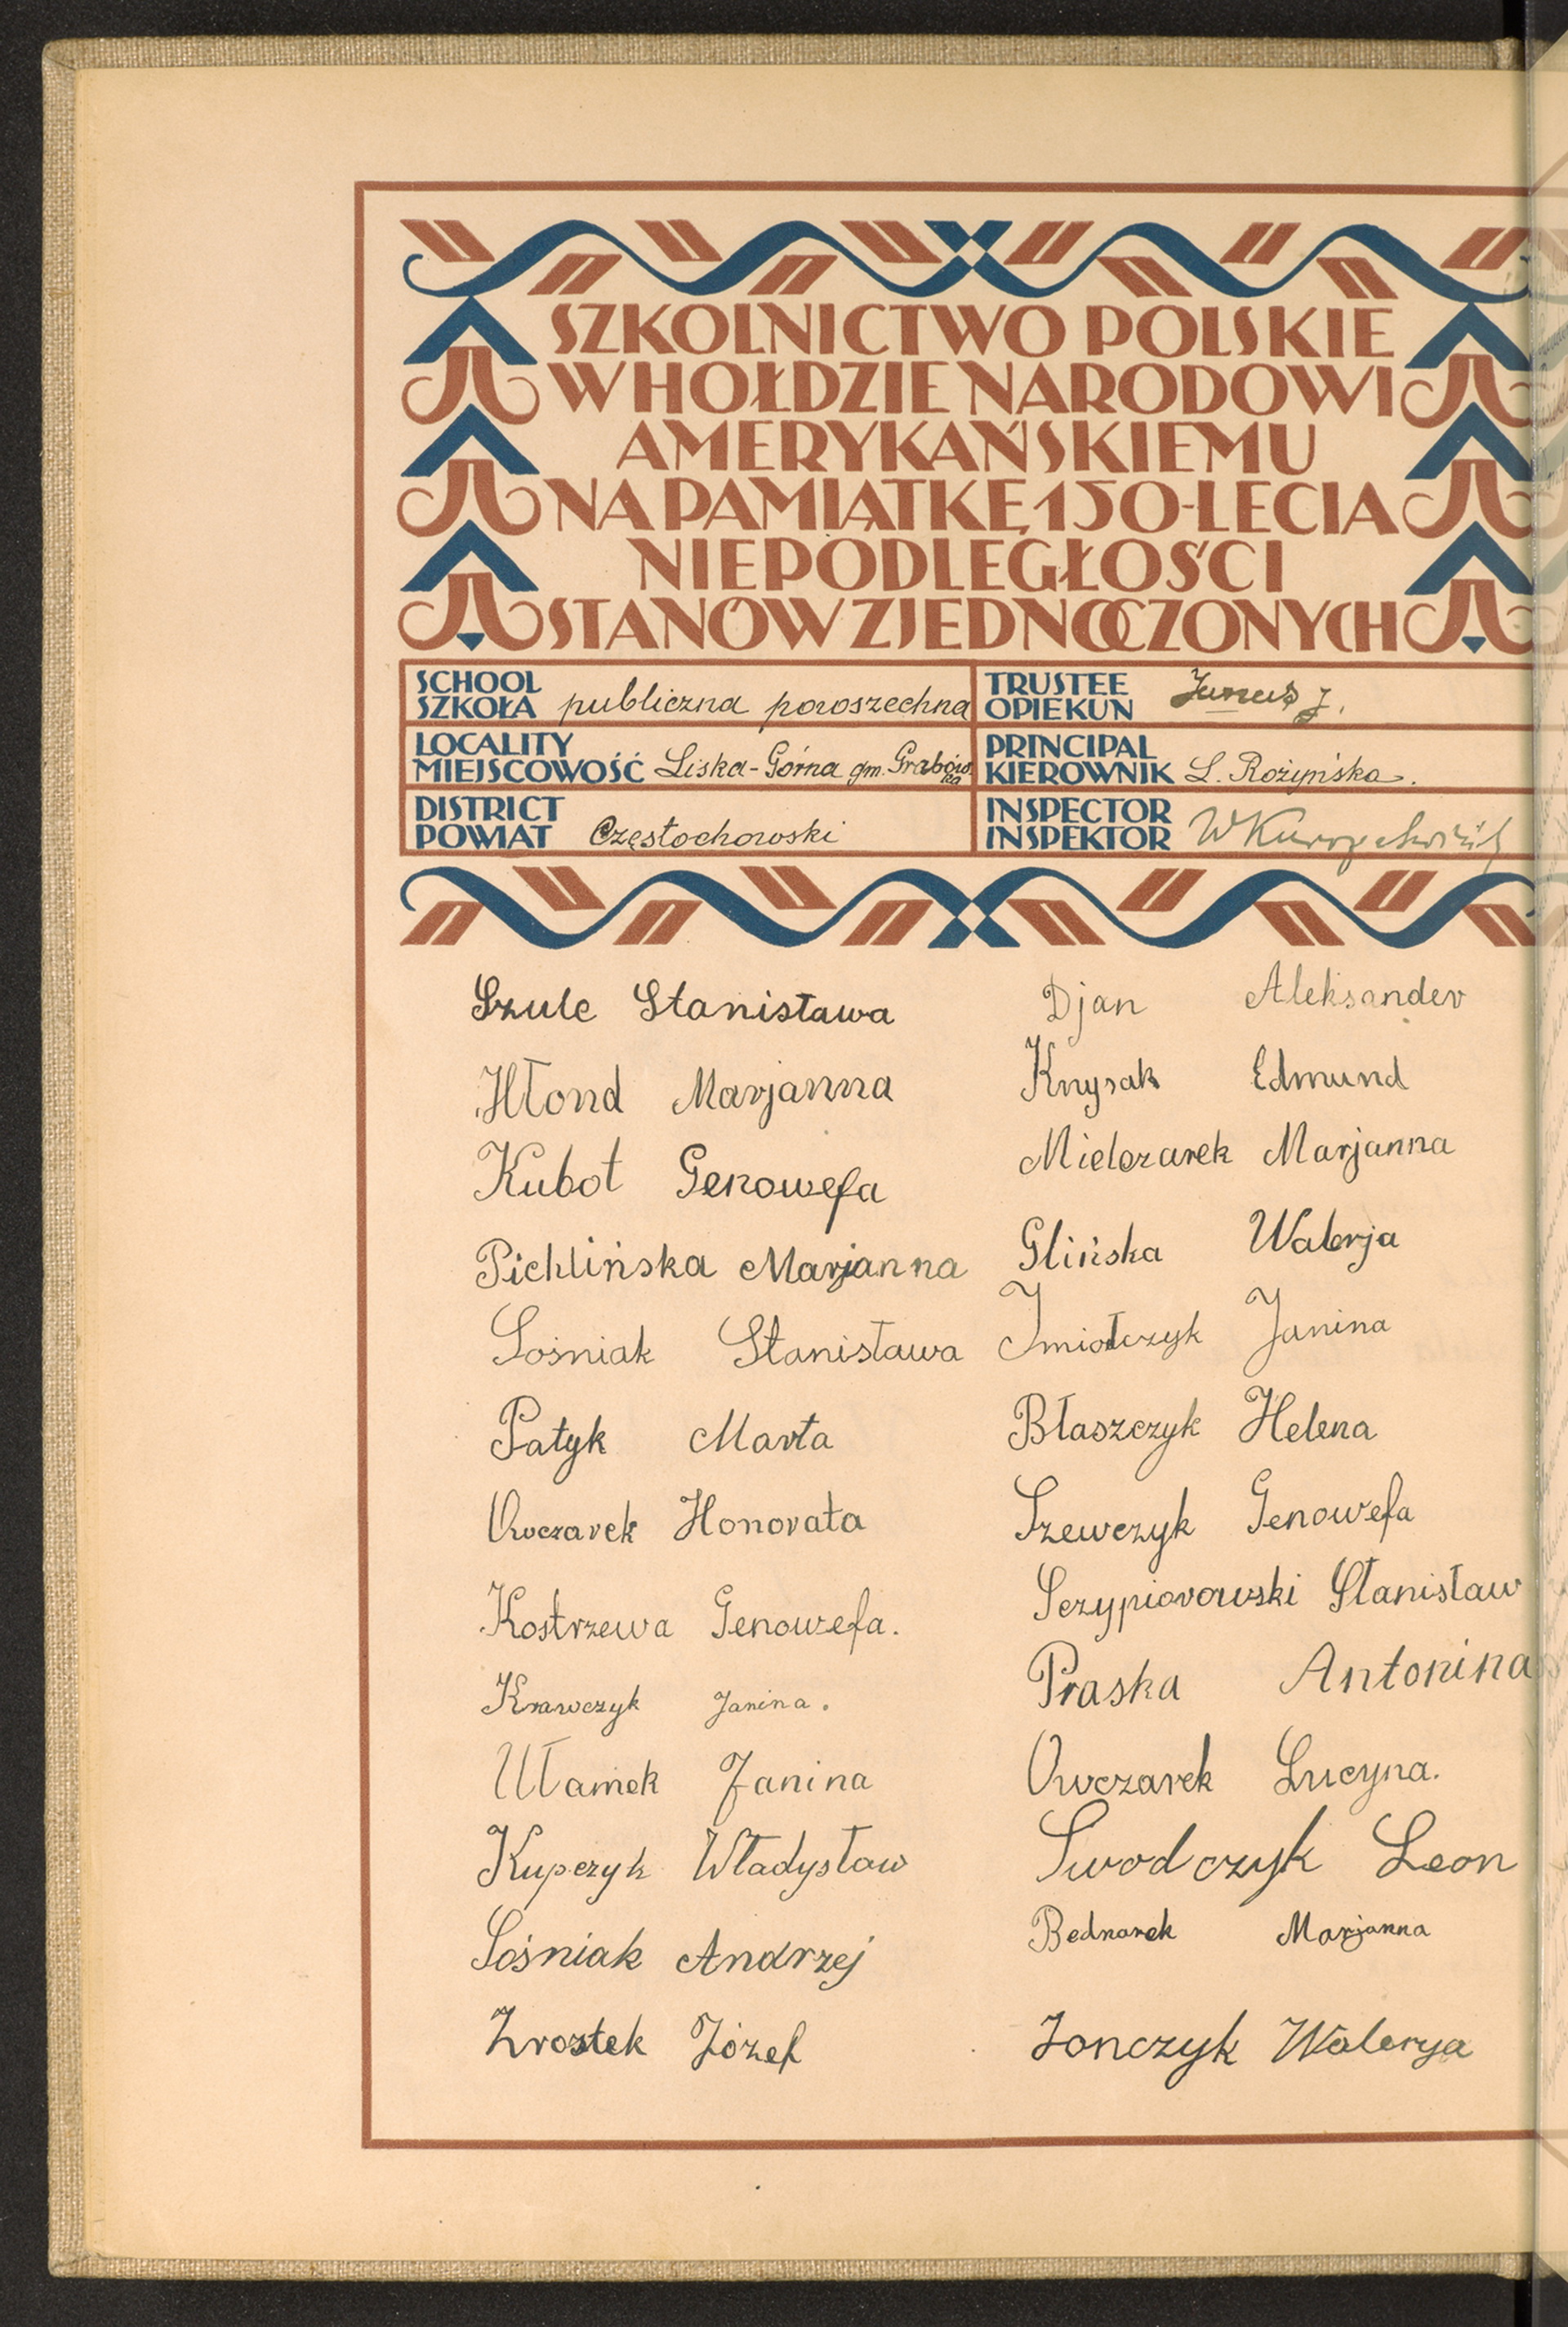 SZKOLNICTWO POLSKIE
W HOŁDZIE NARODOWI
AMERYKAŃSKIEMU
NA PAMIĄTKĘ 150-LECIA
NIEPODLEGŁOŚCI
STANÓW ZJEDNOCZONYCH
SCHOOL
SZKOŁA publiczna powszechna
TRUSTEE
OPIEKUN Janus J.
LOCALITY
MIEJSCOWOŚĆ Liska-Górna gm. Grabówka
PRINCIPAL
KIEROWNIK L. Rożyńska.
DISTRICT
POWIAT Częstochowski
INSPECTOR
INSPEKTOR
Szulc Stanisława
Hłond Marjanna
Kubot Genowefa
Pichlińska Marjanna
Sośniak Stanisława
Patyk Marta
Owczarek Honorata
Kostrzewa Genowefa.
Krawczyk Janina.
Ułamek Janina
Kupczyk Władysław
Sośniak Andrzej
Zrostek Józef
Djan Aleksander
Knysak Edmund
Mielczarek Marjanna
Glińska Walerja
Imiołczyk Janina
Błaszczyk Helena
Szewczyk Genowefa
Sczypiorowski Stanisław
Praska Antonina
Owczarek Lucyna.
Swodczyk Leon
Bednarek Marjanna
Jonczyk Walerya